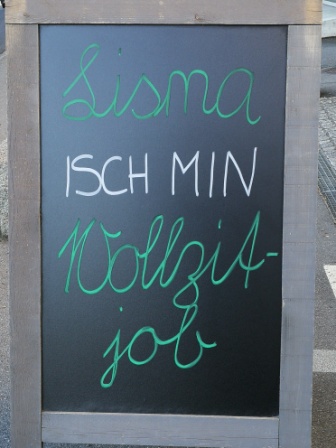 Lisma
ISCH MIN
Wollzit-
job